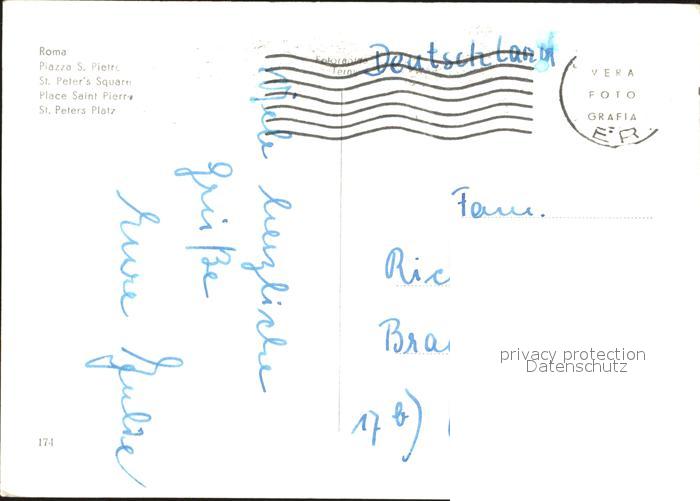 Roma
Piazza S. Pietro
St. Peter's Square
Place Saint Pierre
St. Peters Platz
Deutschland
VERA
FOTO
GRAFIA
Viele herzliche
Grüße
Eure
Fam.
Ric
Bra
17 b)
privacy protection
Datenschutz
174